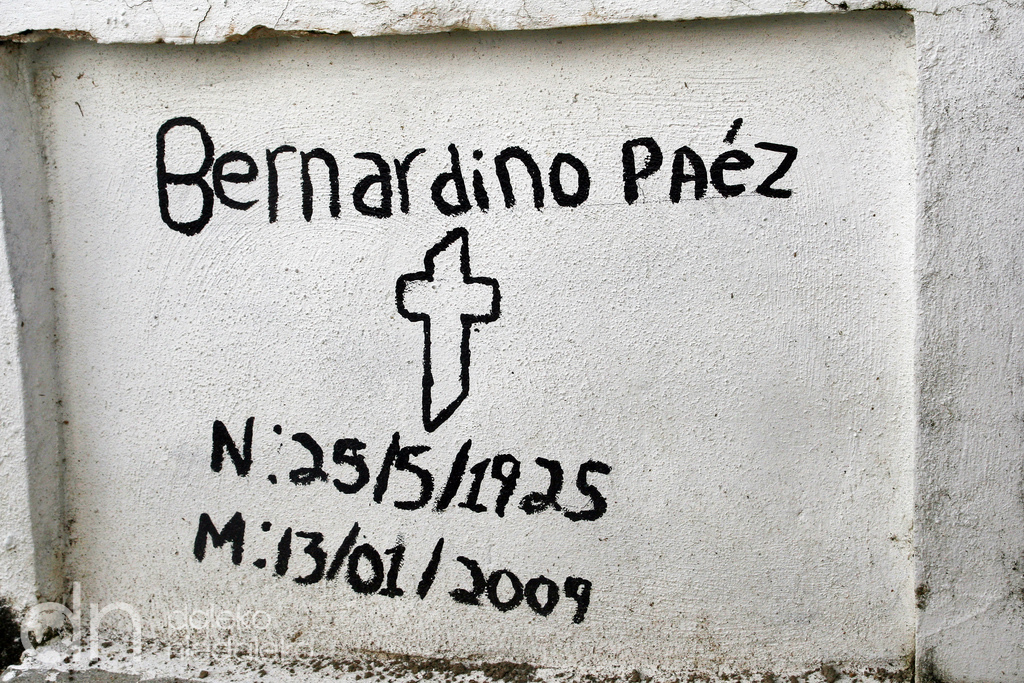 Bernardino PAéz
N:25/5/1925
M:13/01/2009
dn daleko
niedaleko